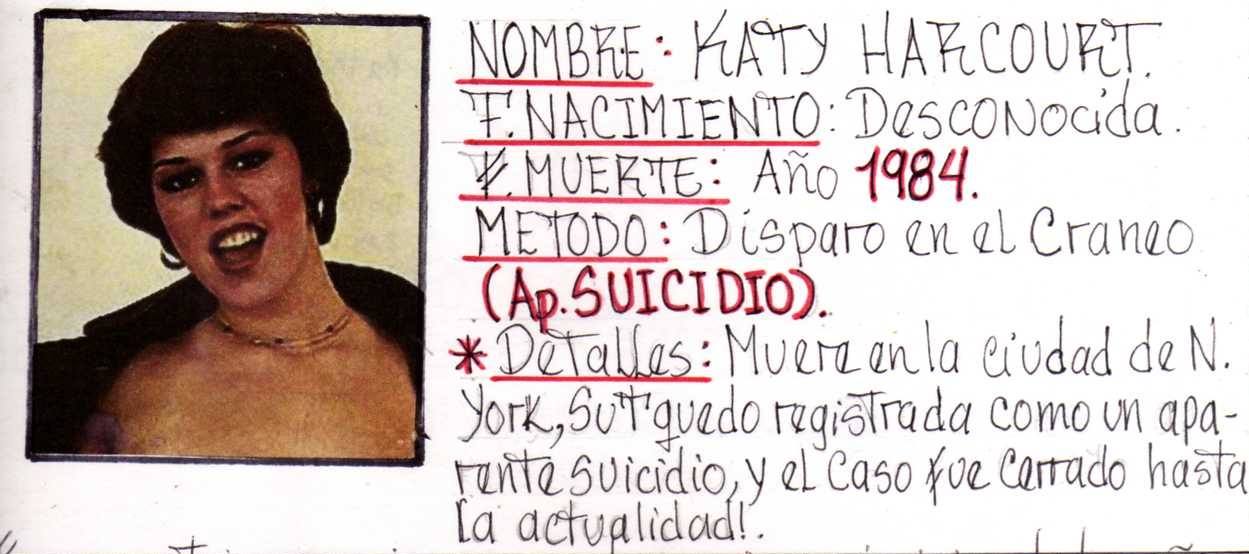 NOMBRE: KATY HARCOURT.
F. NACIMIENTO: Desconocida.
F. MUERTE: Año 1984.
METODO: Disparo en el Craneo
(Ap. SUICIDIO).
* Detalles: Muere en la ciudad de N.
York, Su † quedo registrada como un apa-
rente suicidio, y el caso fue cerrado hasta
la actualidad!.